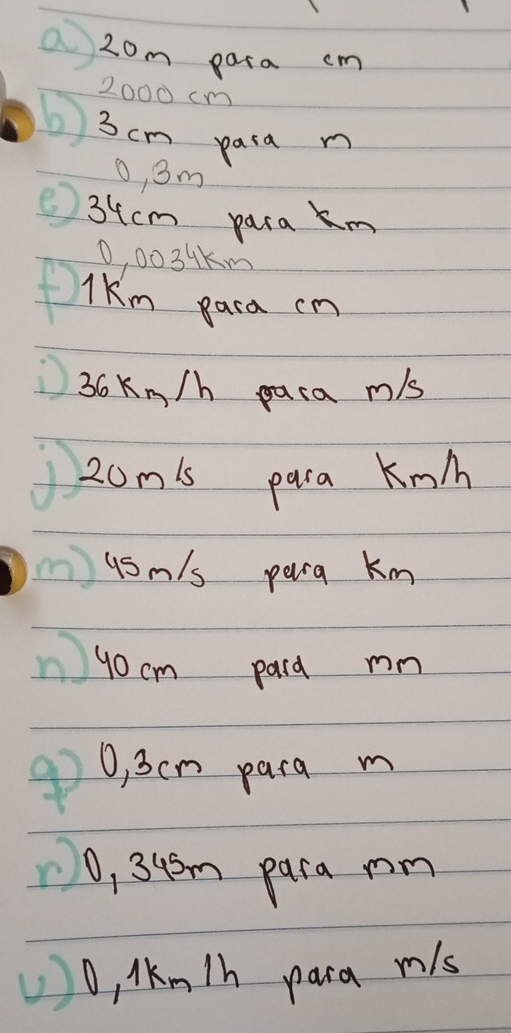 a) 20m para cm
2000 cm
b) 3cm para m
0,3m
e) 34cm para km
0,0034Km
f) 1Km para cm
i) 36Km/h para m/s
j) 20m/s para Km/h
m) 45m/s para Km
n) 40cm para mm
q) 0,3cm para m
r) 0,345m para mm
u) 0,1Km/h para m/s